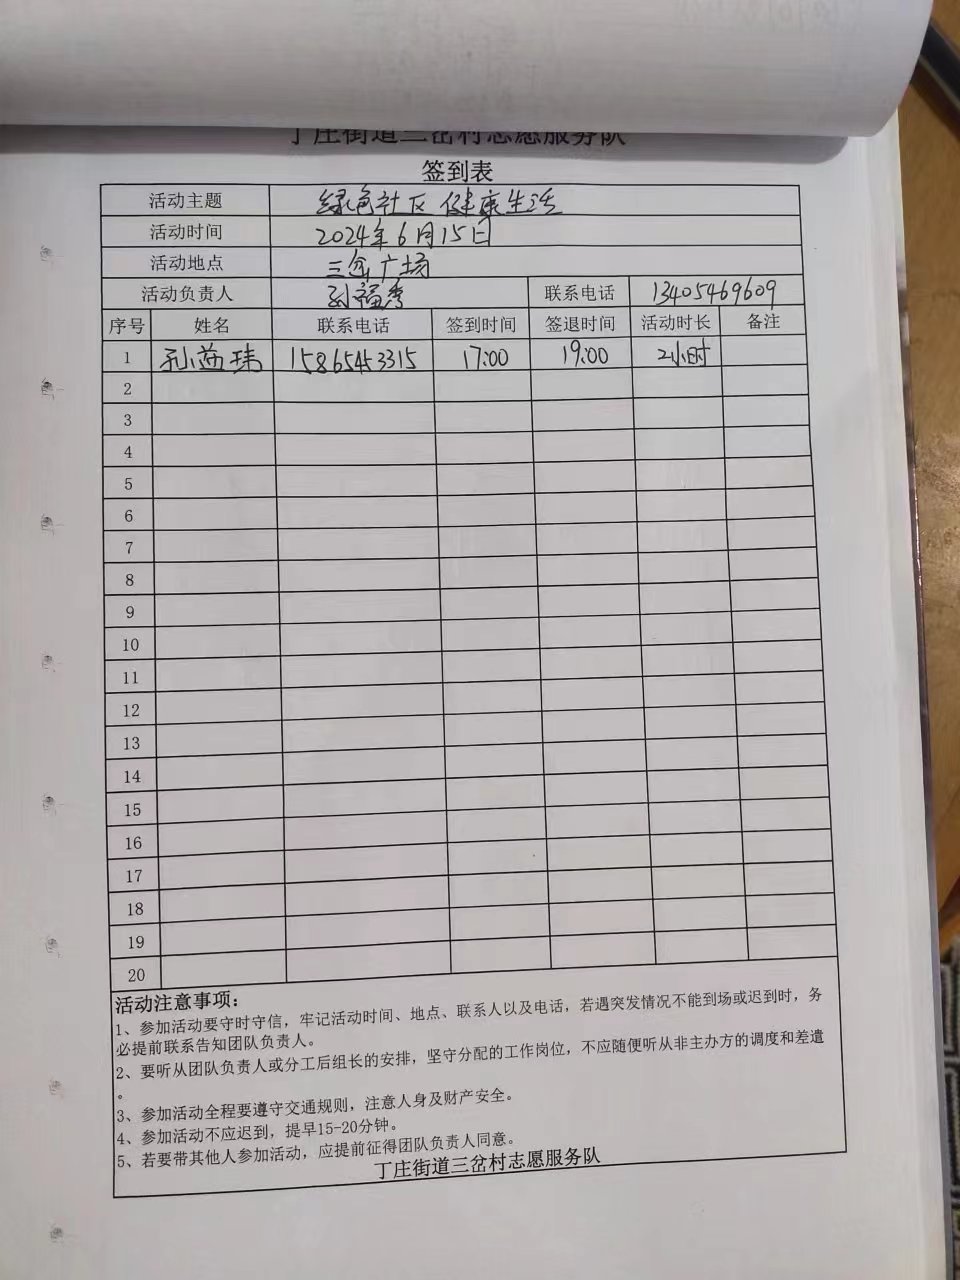 丁庄街道三岔村志愿服务队
签到表
活动主题 绿色社区 健康生活
活动时间 2024年6月15日
活动地点 三岔广场
活动负责人 孙福秀 联系电话 13405469609
序号 姓名 联系电话 签到时间 签退时间 活动时长 备注
1 孙益玮 15865453315 17:00 19:00 2小时
2
3
4
5
6
7
8
9
10
11
12
13
14
15
16
17
18
19
20
活动注意事项：
1、参加活动要守时守信，牢记活动时间、地点、联系人以及电话，若遇突发情况不能到场或迟到时，务
必提前联系告知团队负责人。
2、要听从团队负责人或分工后组长的安排，坚守分配的工作岗位，不应随便听从非主办方的调度和差遣
。
3、参加活动全程要遵守交通规则，注意人身及财产安全。
4、参加活动不应迟到，提早15-20分钟。
5、若要带其他人参加活动，应提前征得团队负责人同意。
丁庄街道三岔村志愿服务队